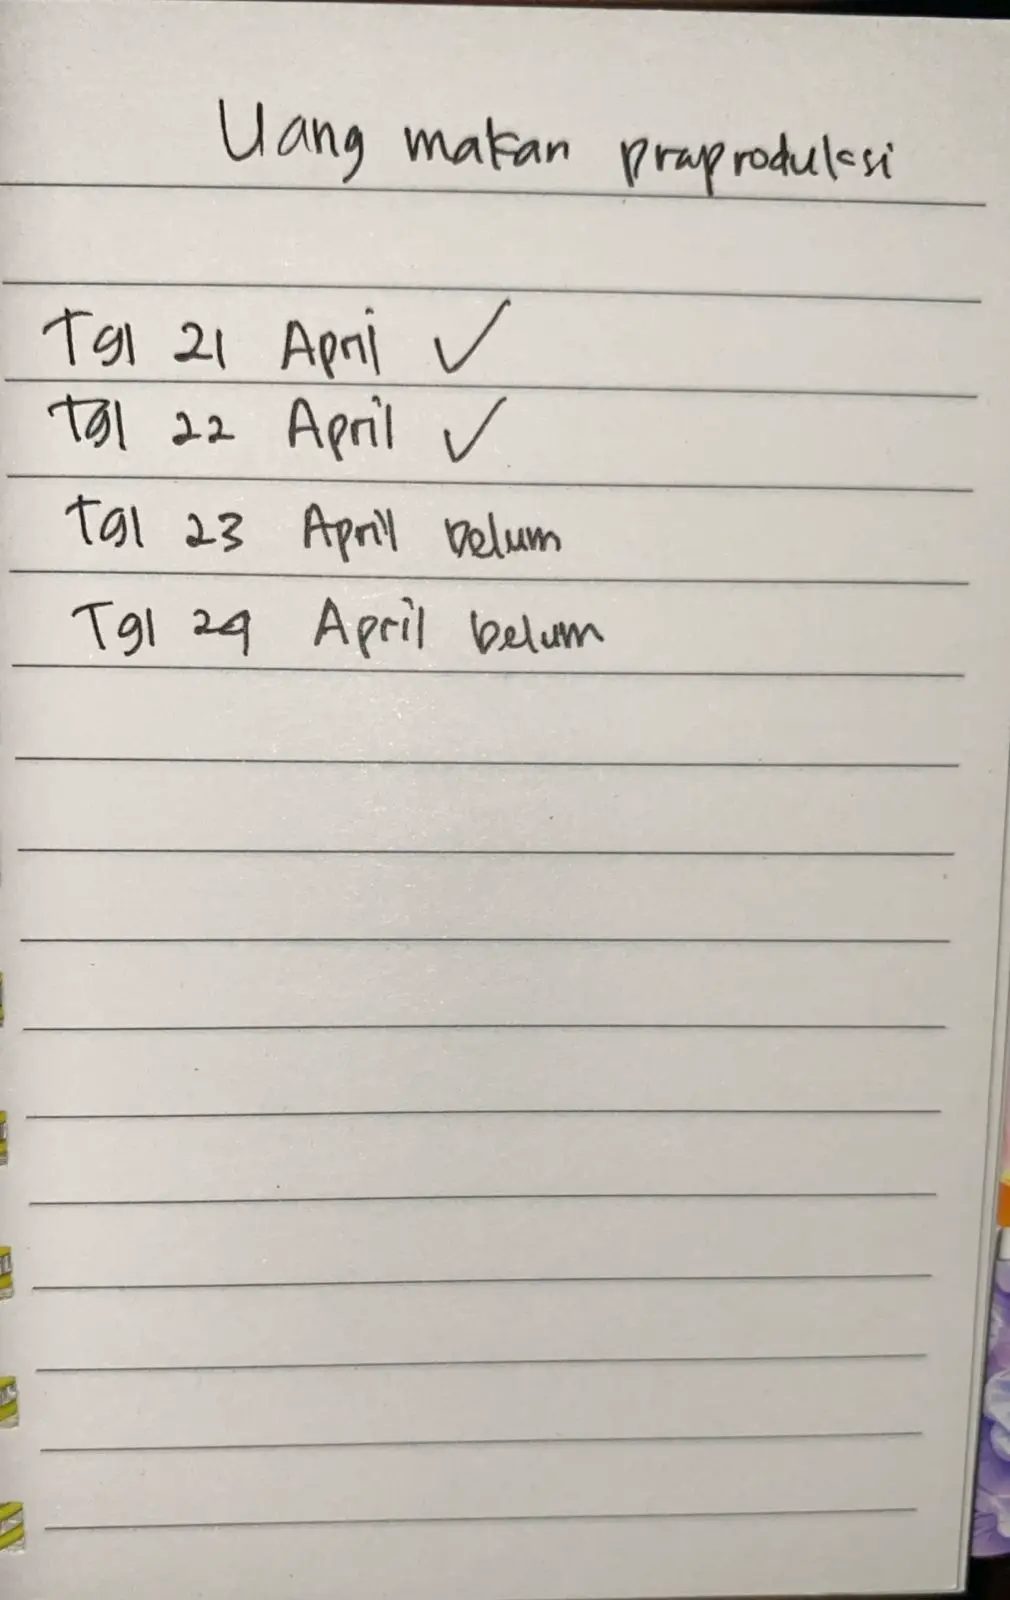 Uang makan praproduksi
Tgl 21 April ✓
Tgl 22 April ✓
Tgl 23 April belum
Tgl 24 April belum